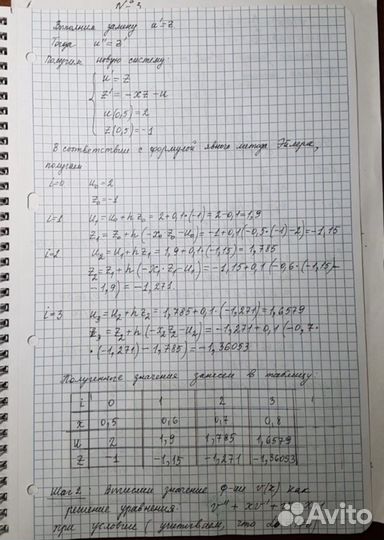 № 3
Выполним замену u' = z
Тогда u'' = z'
Получим новую систему:
u' = z
z' = -xz - u
u(0,5) = 2
z(0,5) = -1
В соответствие с формулой явного метода Эйлера,
получаем
i=0 u₀ = 2
z₀ = -1
i=1 u₁ = u₀ + h z₀ = 2 + 0,1·(-1) = 2 - 0,1 = 1,9
z₁ = z₀ + h(-x₀ z₀ - u₀) = -1 + 0,1(-0,5·(-1) - 2) = -1,15
i=2 u₂ = u₁ + h z₁ = 1,9 + 0,1·(-1,15) = 1,785
z₂ = z₁ + h(-x₁ z₁ - u₁) = -1,15 + 0,1(-0,6·(-1,15) -
- 1,9) = -1,271
i=3 u₃ = u₂ + h z₂ = 1,785 + 0,1·(-1,271) = 1,6579
z₃ = z₂ + h(-x₂ z₂ - u₂) = -1,271 + 0,1(-0,7·
·(-1,271) - 1,785) = -1,36053
Полученные значения занесем в таблицу:
i 0 1 2 3
x 0,5 0,6 0,7 0,8
u 2 1,9 1,785 1,6579
z -1 -1,15 -1,271 -1,36053
Шаг 2: Вычислим значение ф-ии v(x) как
решение уравнения v'' + xv' +
при условии (учитываем, что
Avito